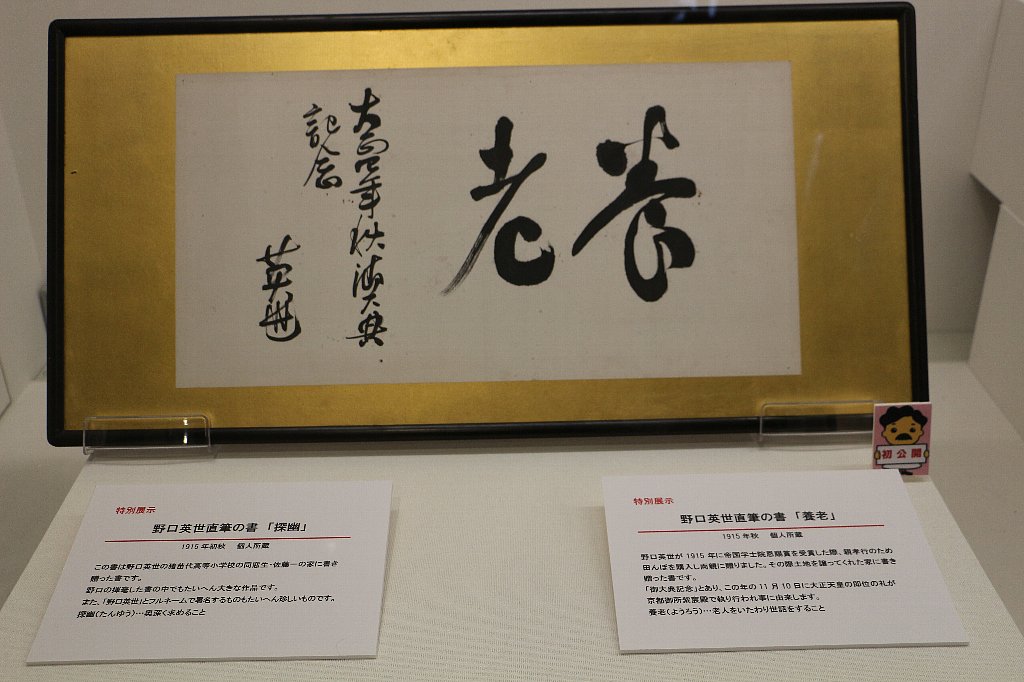 養老
大正四年秋御大典
記念
英世
初公開
特別展示
野口英世直筆の書 「探幽」
1915年初秋 個人所蔵
この書は野口英世の猪苗代高等小学校の同窓生・佐藤一の家に書き
贈った書です。
野口の揮毫した書の中でもたいへん大きな作品です。
また、「野口英世」とフルネームで署名するものもたいへん珍しいものです。
探幽(たんゆう)…奥深く求めること
特別展示
野口英世直筆の書 「養老」
1915年秋 個人所蔵
野口英世が 1915 年に帝国学士院恩賜賞を受賞した際、親孝行のため
田んぼを購入し両親に贈りました。その際土地を譲ってくれた家に書き
贈った書です。
「御大典記念」とあり、この年の 11 月 10 日に大正天皇の即位の礼が
京都御所紫宸殿で執り行われ事に由来します。
養老(ようろう)…老人をいたわり世話をすること